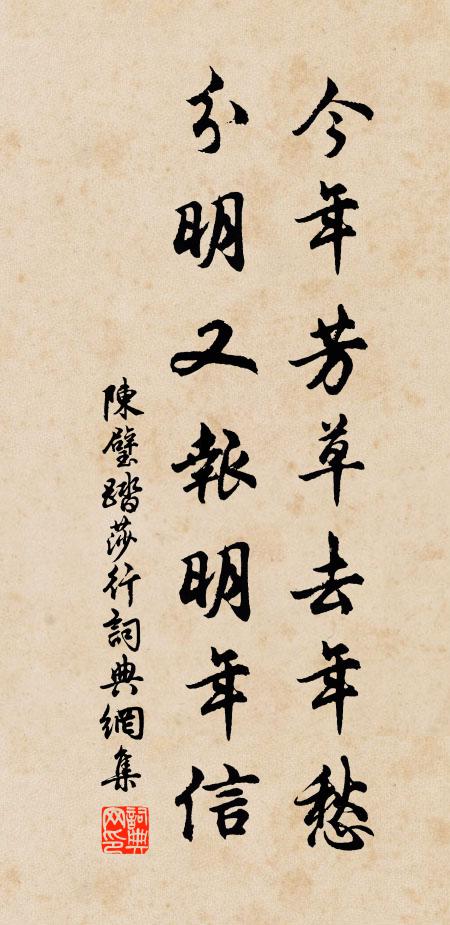 今年芳草去年愁
分明又報明年信
陳璧踏莎行詞典網集
詞典网印